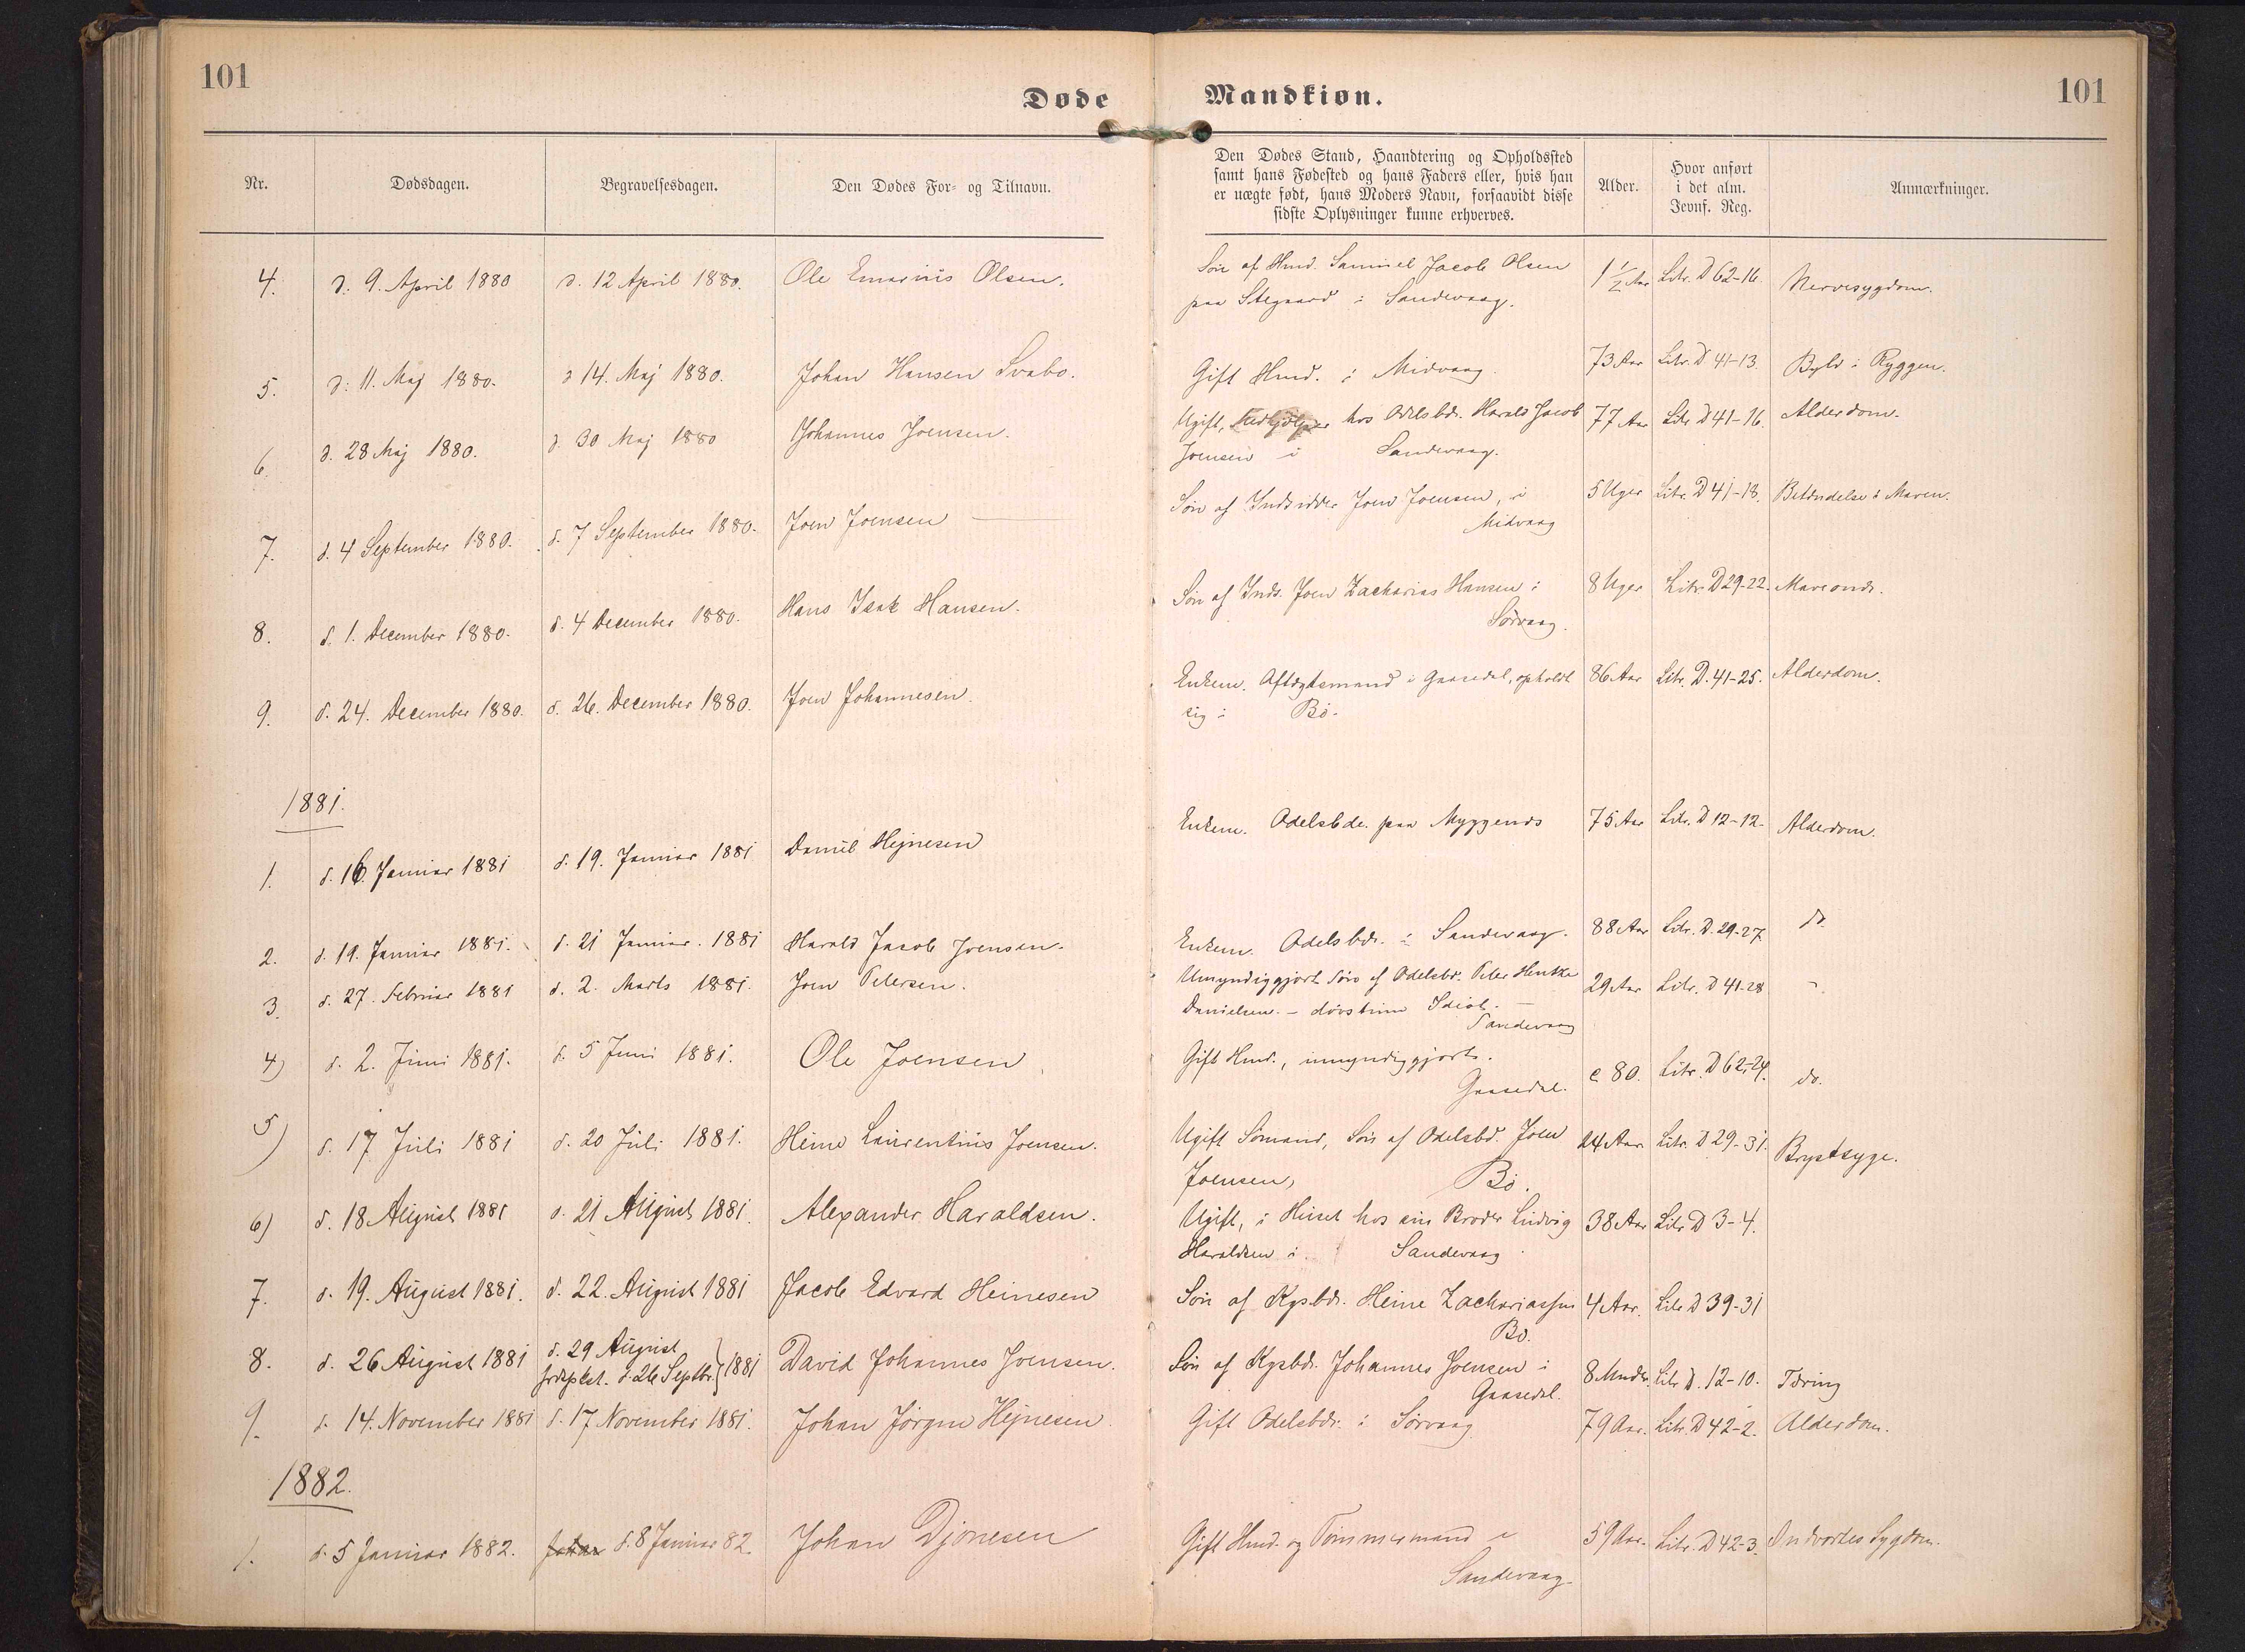 101
Døde Mandkiøn.
101
Nr. Dødsdagen. Begravelsesdagen. Den Dødes For- og Tilnavn. Den Dødes Stand, Haandtering og Opholdssted
samt hans Fødested og hans Faders eller, hvis han
er uægte født, hans Moders Navn, forsaavidt disse
sidste Oplysninger kunne erhverves. Alder. Hvor anført
i det alm.
Jevnf. Reg. Anmærkninger.
4. d. 9. April 1880 d. 12 April 1880. Ole Emarius Olsen. Søn af Hmd. Samuel Jacob Olsen 1½ Aar Litr. D 62-16 Nervesygdom.
paa Stegaard i Sandevaag.
5. d. 11. Maj 1880. d 14. Maj 1880. Johan Hansen Svabo. Gift Hmd. i Midvaag. 73 Aar Litr. D 41-13. Byld i Ryggen.
6. d. 28 Maj 1880. d. 30 Maj 1880 Johannes Joensen. Ugift, hos Odelsbdr. Harald Jacob 77 Aar Litr D 41-16. Alderdom.
Joensen i Sandevaag.
7. d. 4 September 1880. d. 7 September 1880. Joen Joensen — Søn af Indsidder Joen Joensen, i 5 Uger Litr. D 41-18. Betændelse i Maven.
Midvaag
8. d. 1. December 1880. d. 4 December 1880. Hans Isak Hansen. Søn af Inds. Joen Zacharias Hansen i 8 Uger Litr D 29-22. Maveonde.
Sørvaag.
9. d. 24. December 1880. d. 26. December 1880. Joen Johannesen. Enkem. Aftægtsmand i Gaasedal, opholdt 86 Aar Litr. D. 41-25. Alderdom.
sig i Bø.
1881.
1. d. 16. Januar 1881 d. 19. Januar 1881 Daniel Hejnesen Enkem. Odelsbde. paa Myggenæs 75 Aar Litr. D 12-12. Alderdom.
2. d. 19. Januar 1881. d. 21 Januar. 1881 Harald Jacob Joensen. Enkem. Odelsbdr. i Sandevaag. 88 Aar Litr. D. 29-27 do.
3. d. 27. Februar 1881 d. 2. Marts 1881. Joen Petersen. Umyndiggjort Søn af Odelsbd. Peter Hentze 29 Aar Litr. D 41-28 —
Danielsen. — døvstum Idiot. —
Sandevaag
4) d. 2. Juni 1881. d. 5 Juni 1881. Ole Joensen Gift Hmd., umyndiggjort. c 80. Litr. D 62-24. do.
Gaasedal.
5) d. 17 Juli 1881 d. 20 Juli 1881. Heine Laurentius Joensen. Ugift Sømand, Søn af Odelsbd. Joen 24 Aar. Litr. D 29-31. Brystsyge.
Joensen, Bø.
6) d. 18 August 1881 d. 21 August 1881. Alexander Haraldsen. Ugift, i Huset hos sin Broder Ludvig 38 Aar Litr D 3-4.
Haraldsen i Sandevaag
7. d. 19. August 1881. d. 22. August 1881 Jacob Edvard Heinesen Søn af Kgsbdr. Heine Zachariassen 4 Aar. Litr D 39-31
Bø.
8. d. 26 August 1881 d. 29 August
Jordpkst. d. 26 Septbr. } 1881 David Johannes Joensen. Søn af Kgsbdr. Johannes Joensen i 8 Mndr. Litr D. 12-10. Tæring
Gaasedal.
9. d. 14. November 1881 d. 17 November 1881. Johan Jørgen Hejnesen. Gift Odelsbdr. i Sørvaag 79 Aar. Litr. D 42-2. Alderdom.
1882.
1. d. 5 Januar 1882. d. 8 Januar 82. Johan Djonesen Gift Hmd. og Tømmermand i 59 Aar. Litr. D 42-3. Indvortes Sygdom.
Sandevaag.